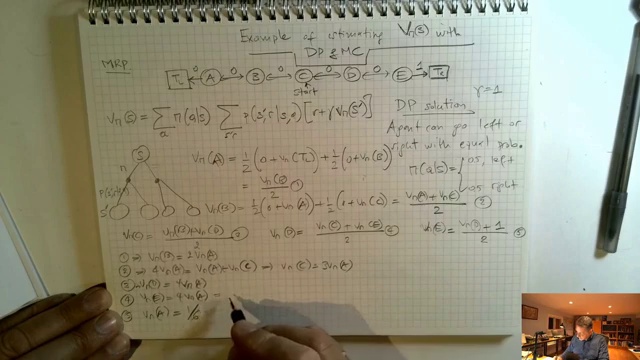 Example of estimating Vπ(s) with
DP & MC
MRP
Tₗ 0 A 0 B 0 C 0 D 0 E 1 Tᵣ
start
γ=1
Vπ(s) = Σₐ π(a|s) Σ p(s',r|s,a) [r+γVπ(s')]
DP solution
Agent can go left or
right with equal prob.
π(a|s) = { 0.5, left
0.5 right
S
π
S'
Vπ(A) = 1/2 (0+Vπ(Tₗ)) + 1/2 (0+Vπ(B))
= Vπ(B)/2 ①
Vπ(B) = 1/2 (0+Vπ(A)) + 1/2 (0+Vπ(C)) =
②
Vπ(C) = Vπ(B)+Vπ(D) / 2 ③
Vπ(D) = Vπ(C)+Vπ(E) / 2 ④
Vπ(E) = Vπ(D)+1 / 2 ⑤
① ⇒ Vπ(B) = 2Vπ(A)
② ⇒ 4Vπ(A) = Vπ(A)+Vπ(C) ⇒ Vπ(C) = 3Vπ(A)
③ ⇒ Vπ(D) = 4Vπ(A)
④ =
⑤ Vπ(A) = 1/6